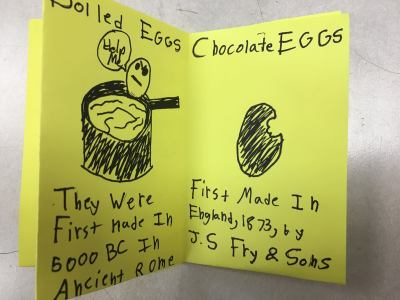 Boiled EGGS
Help
Me
They Were
First made In
5000 BC In
Ancient Rome
Chocolate EGGS
First Made In
England, 1873, by
J.S Fry & Sons